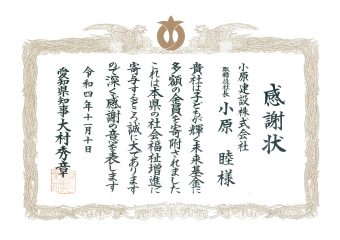 感謝状
小原建設株式会社
取締役社長 小原 睦 様
貴社は子どもが輝く未来基金に
多額の金員を寄附されました
これは本県の社会福祉増進に
寄与するところ誠に大であります
ので深く感謝の意を表します
令和四年十一月十日
愛知県知事 大村秀章